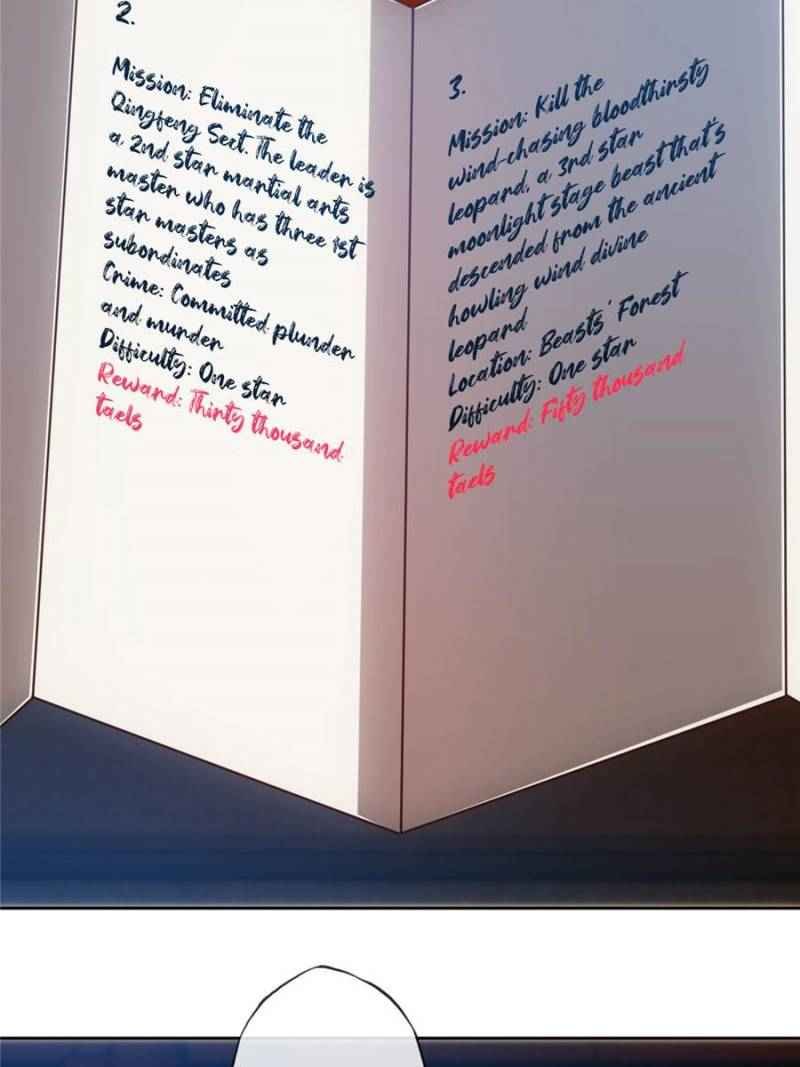 2.
Mission: Eliminate the
Qingfeng Sect. The leader is
a 2nd star martial arts
master who has three 1st
star masters as
subordinates
Crime: Committed plunder
and murder
Difficulty: One star
Reward: Thirty thousand
taels
3.
Mission: Kill the
wind-chasing bloodthirsty
leopard, a 3rd star
moonlight stage beast that's
descended from the ancient
howling wind divine
leopard
Location: Beasts' Forest
Difficulty: One star
Reward: Fifty thousand
taels